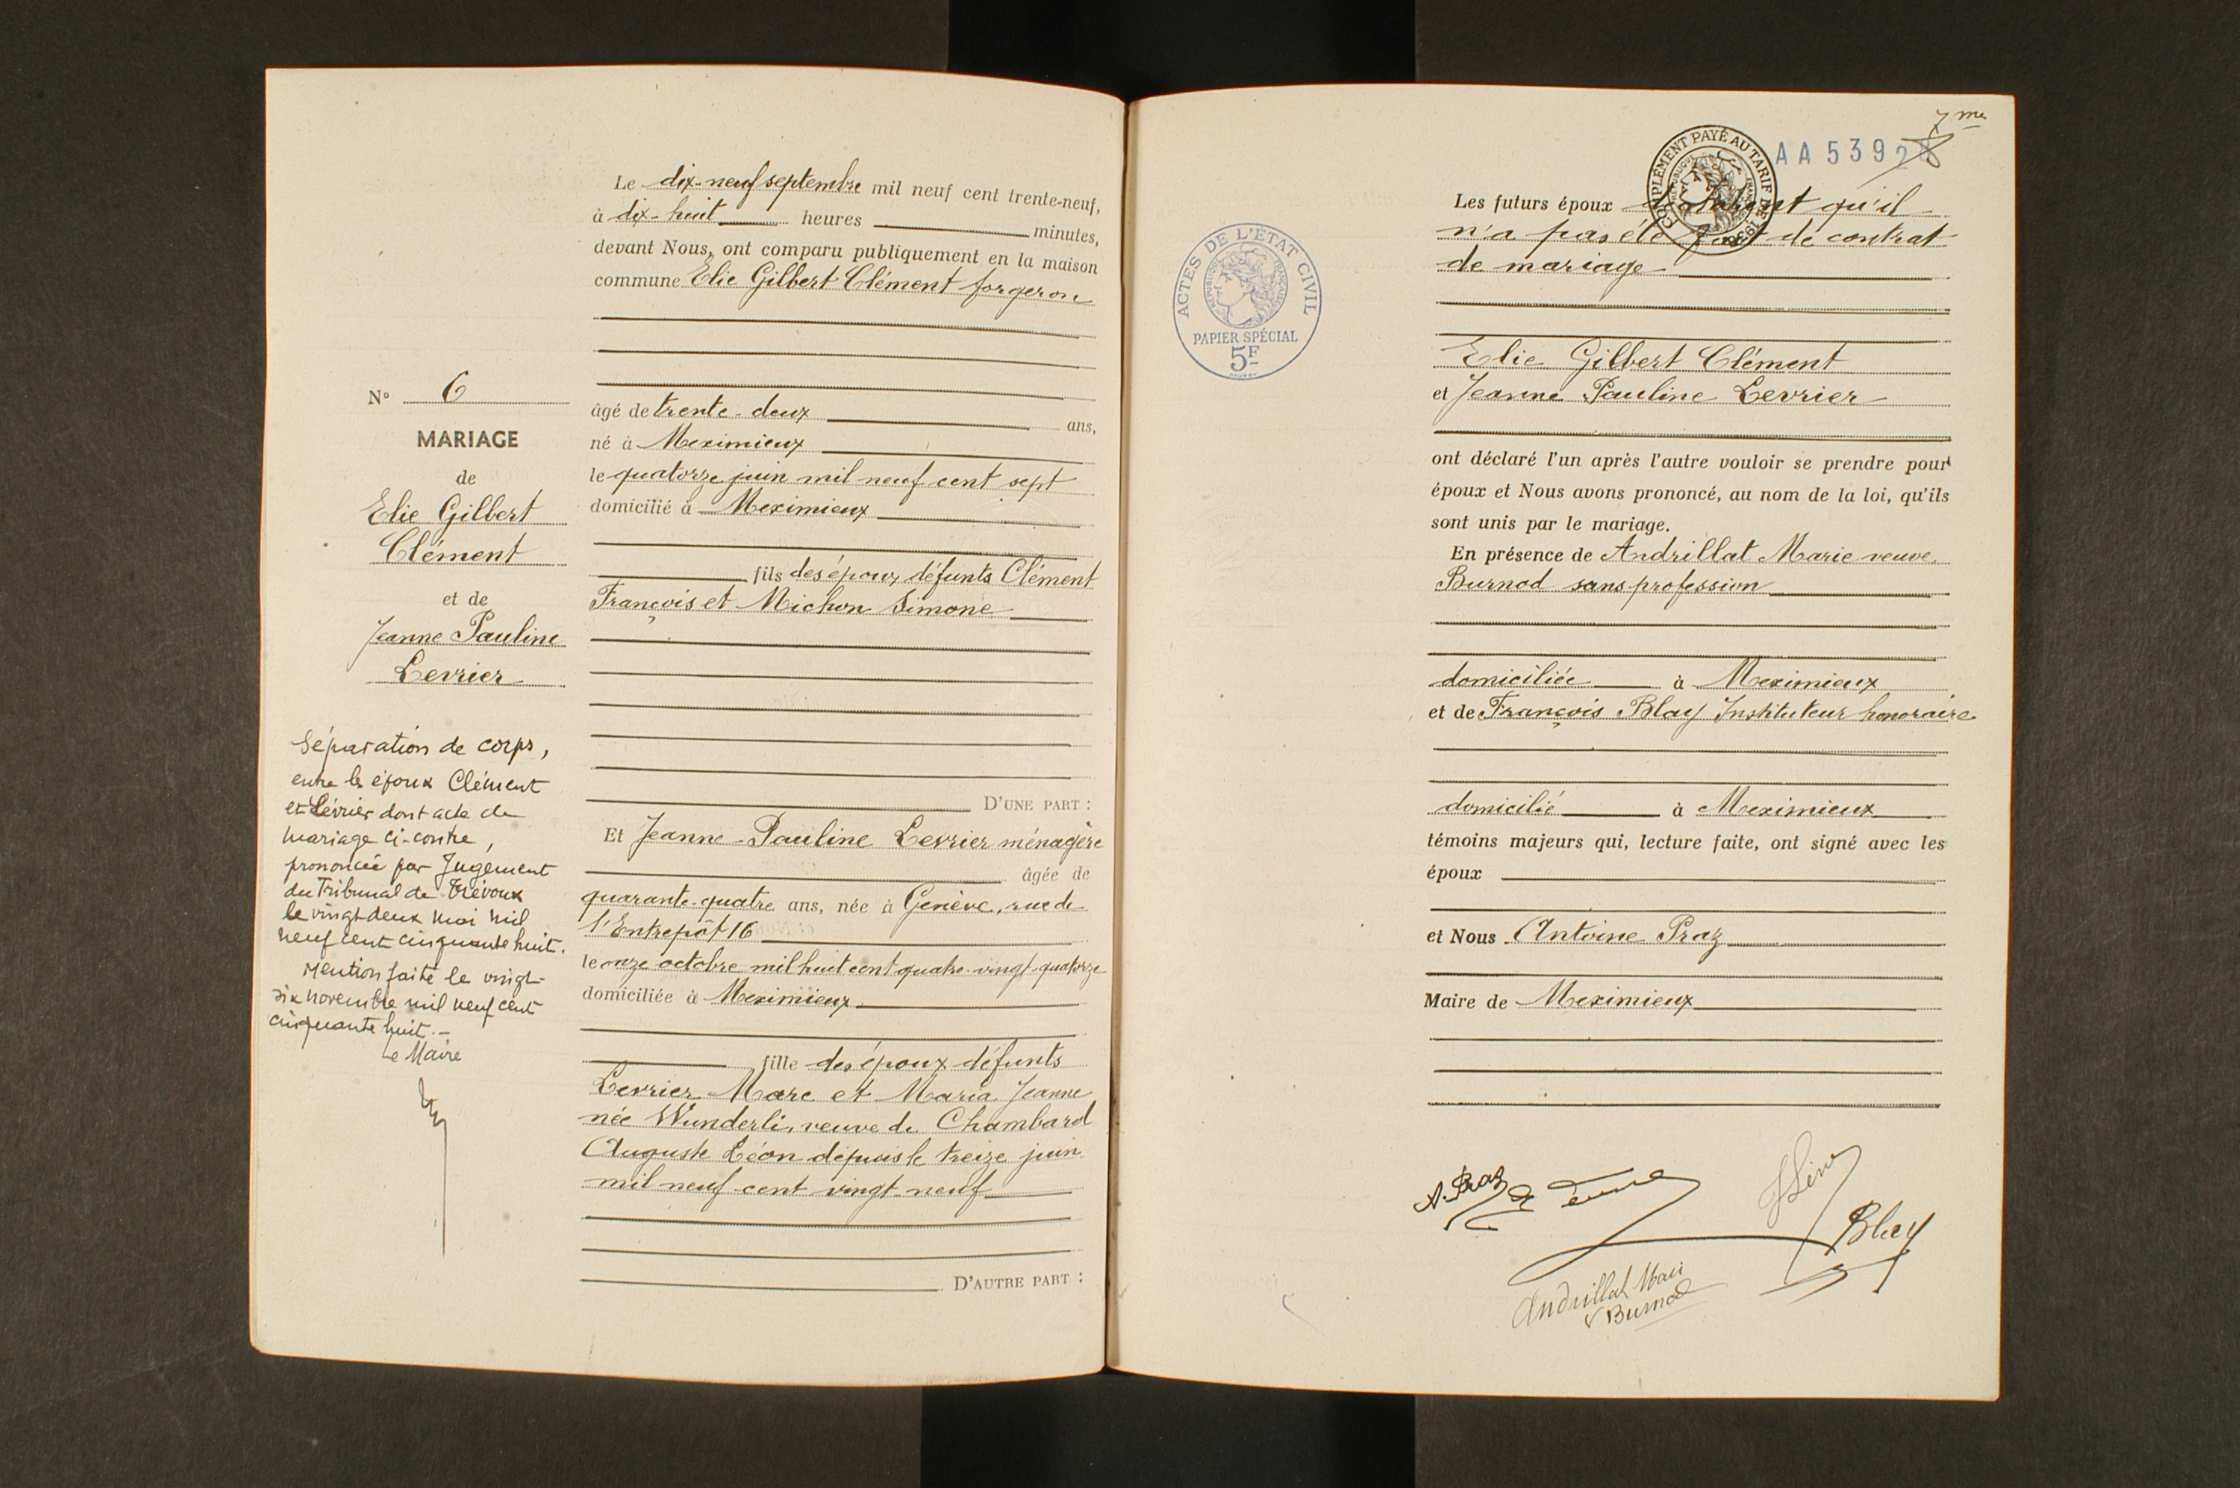 Le dix-neuf septembre mil neuf cent trente-neuf,
à dix-huit heures minutes,
devant Nous, ont comparu publiquement en la maison
commune Elie Gilbert Clément forgeron
N° 6
MARIAGE
de
Elie Gilbert
Clément
et de
Jeanne Pauline
Levrier
âgé de trente-deux ans,
né à Meximieux
le quatorze juin mil neuf cent sept
domicilié à Meximieux
fils des époux défunts Clément
François et Michon Simone
D'UNE PART :
Séparation de corps,
entre les époux Clément
et Lévrier dont acte de
mariage ci-contre,
prononcée par Jugement
du Tribunal de Trévoux
le vingt deux mai mil
neuf cent cinquante huit.
Mention faite le vingt-
six novembre mil neuf cent
cinquante huit.-
Le Maire
Et Jeanne-Pauline Levrier ménagère
âgée de
quarante-quatre ans, née à Genève, rue de
l'Entrepôt 16
le onze octobre mil huit cent quatre-vingt-quatorze
domiciliée à Meximieux
fille des époux défunts
Levrier Marc et Maria Jeanne
née Wunderli, veuve de Chambard
Auguste Léon depuis le treize juin
mil neuf cent vingt-neuf
D'AUTRE PART :
7me
COMPLÉMENT PAYÉ AU TARIF DE
AA 5392
ACTES DE L'ÉTAT CIVIL
PAPIER SPÉCIAL
5F
Les futurs époux déclarent qu'il
n'a pas été fait de contrat
de mariage
Elie Gilbert Clément
et Jeanne Pauline Levrier
ont déclaré l'un après l'autre vouloir se prendre pour
époux et Nous avons prononcé, au nom de la loi, qu'ils
sont unis par le mariage.
En présence de Andrillat Marie veuve
Burnod sans profession
domiciliée à Meximieux
et de François Blay Instituteur honoraire
domicilié à Meximieux
témoins majeurs qui, lecture faite, ont signé avec les
époux
et Nous Antoine Praz
Maire de Meximieux
A. Praz
Blay
Andrillat Marie
v Burnod